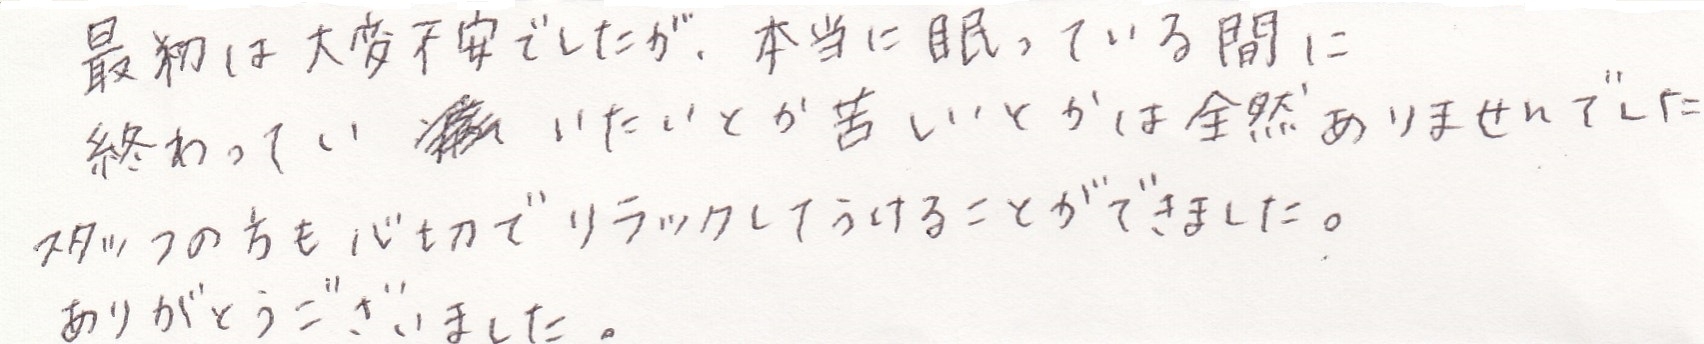 最初は大変不安でしたが、本当に眠っている間に
終わってい いたいとか苦しいとかは全然ありませんでした
スタッフの方も心切でリラックしてうけることができました。
ありがとうございました。